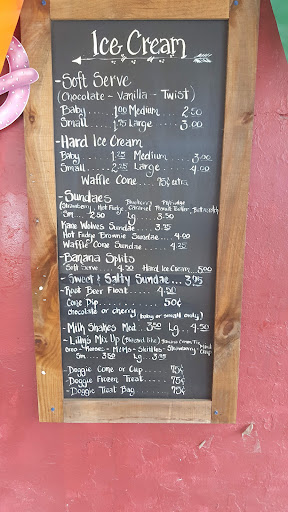 Ice Cream
-Soft Serve
(Chocolate - Vanilla - Twist)
Baby .... 1.00 Medium .... 2.50
Small .... 1.75 Large .... 3.00
-Hard Ice Cream
Baby .... 1.25 Medium .... 3.00
Small .... 2.25 Large .... 4.00
Waffle Cone .... 75¢ extra
-Sundaes
Blueberry
(Strawberry, Hot Fudge, Caramel, Peanut Butter, Butterscotch)
Sm .... 2.50 Lg .... 3.50
Kane Wolves Sundae .... 3.75
Hot Fudge Brownie Sundae .... 4.00
Waffle Cone Sundae .... 4.25
-Banana Splits
Soft Serve .... 4.50 Hard Ice Cream .... 5.00
- Sweet & Salty Sundae ... 3.75
-Root Beer Float ..... 4.50
Cone Dip ..... 50¢
chocolate or cherry (baby or small only)
-Milk Shakes Med .. 3.50 Lg .. 4.50
-Lilly's Mix Up (Blizzard like)
Oreo - Reeses - M&Ms - Skittles - Strawberry
Sm .... 3.50 Lg .... 3.75
-Doggie Cone or Cup .... 75¢
-Doggie Frozen Treat .... 75¢
-Doggie Treat Bag .... 75¢